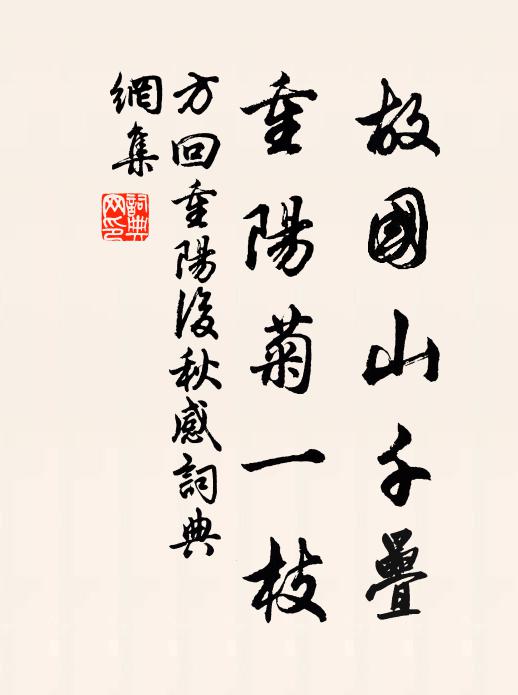 故國山千疊
重陽菊一枝
方回重陽後秋感詞典
網集
詞典
网印